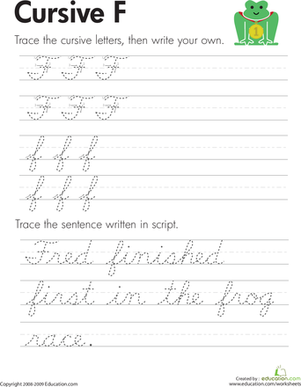 Cursive F
Trace the cursive letters, then write your own.
1
F F F
F F F
f f f
f f f
Trace the sentence written in script.
Fred finished
first in the frog
race.
Copyright 2008-2009 Education.com
Created by:
education.com
www.education.com/worksheets